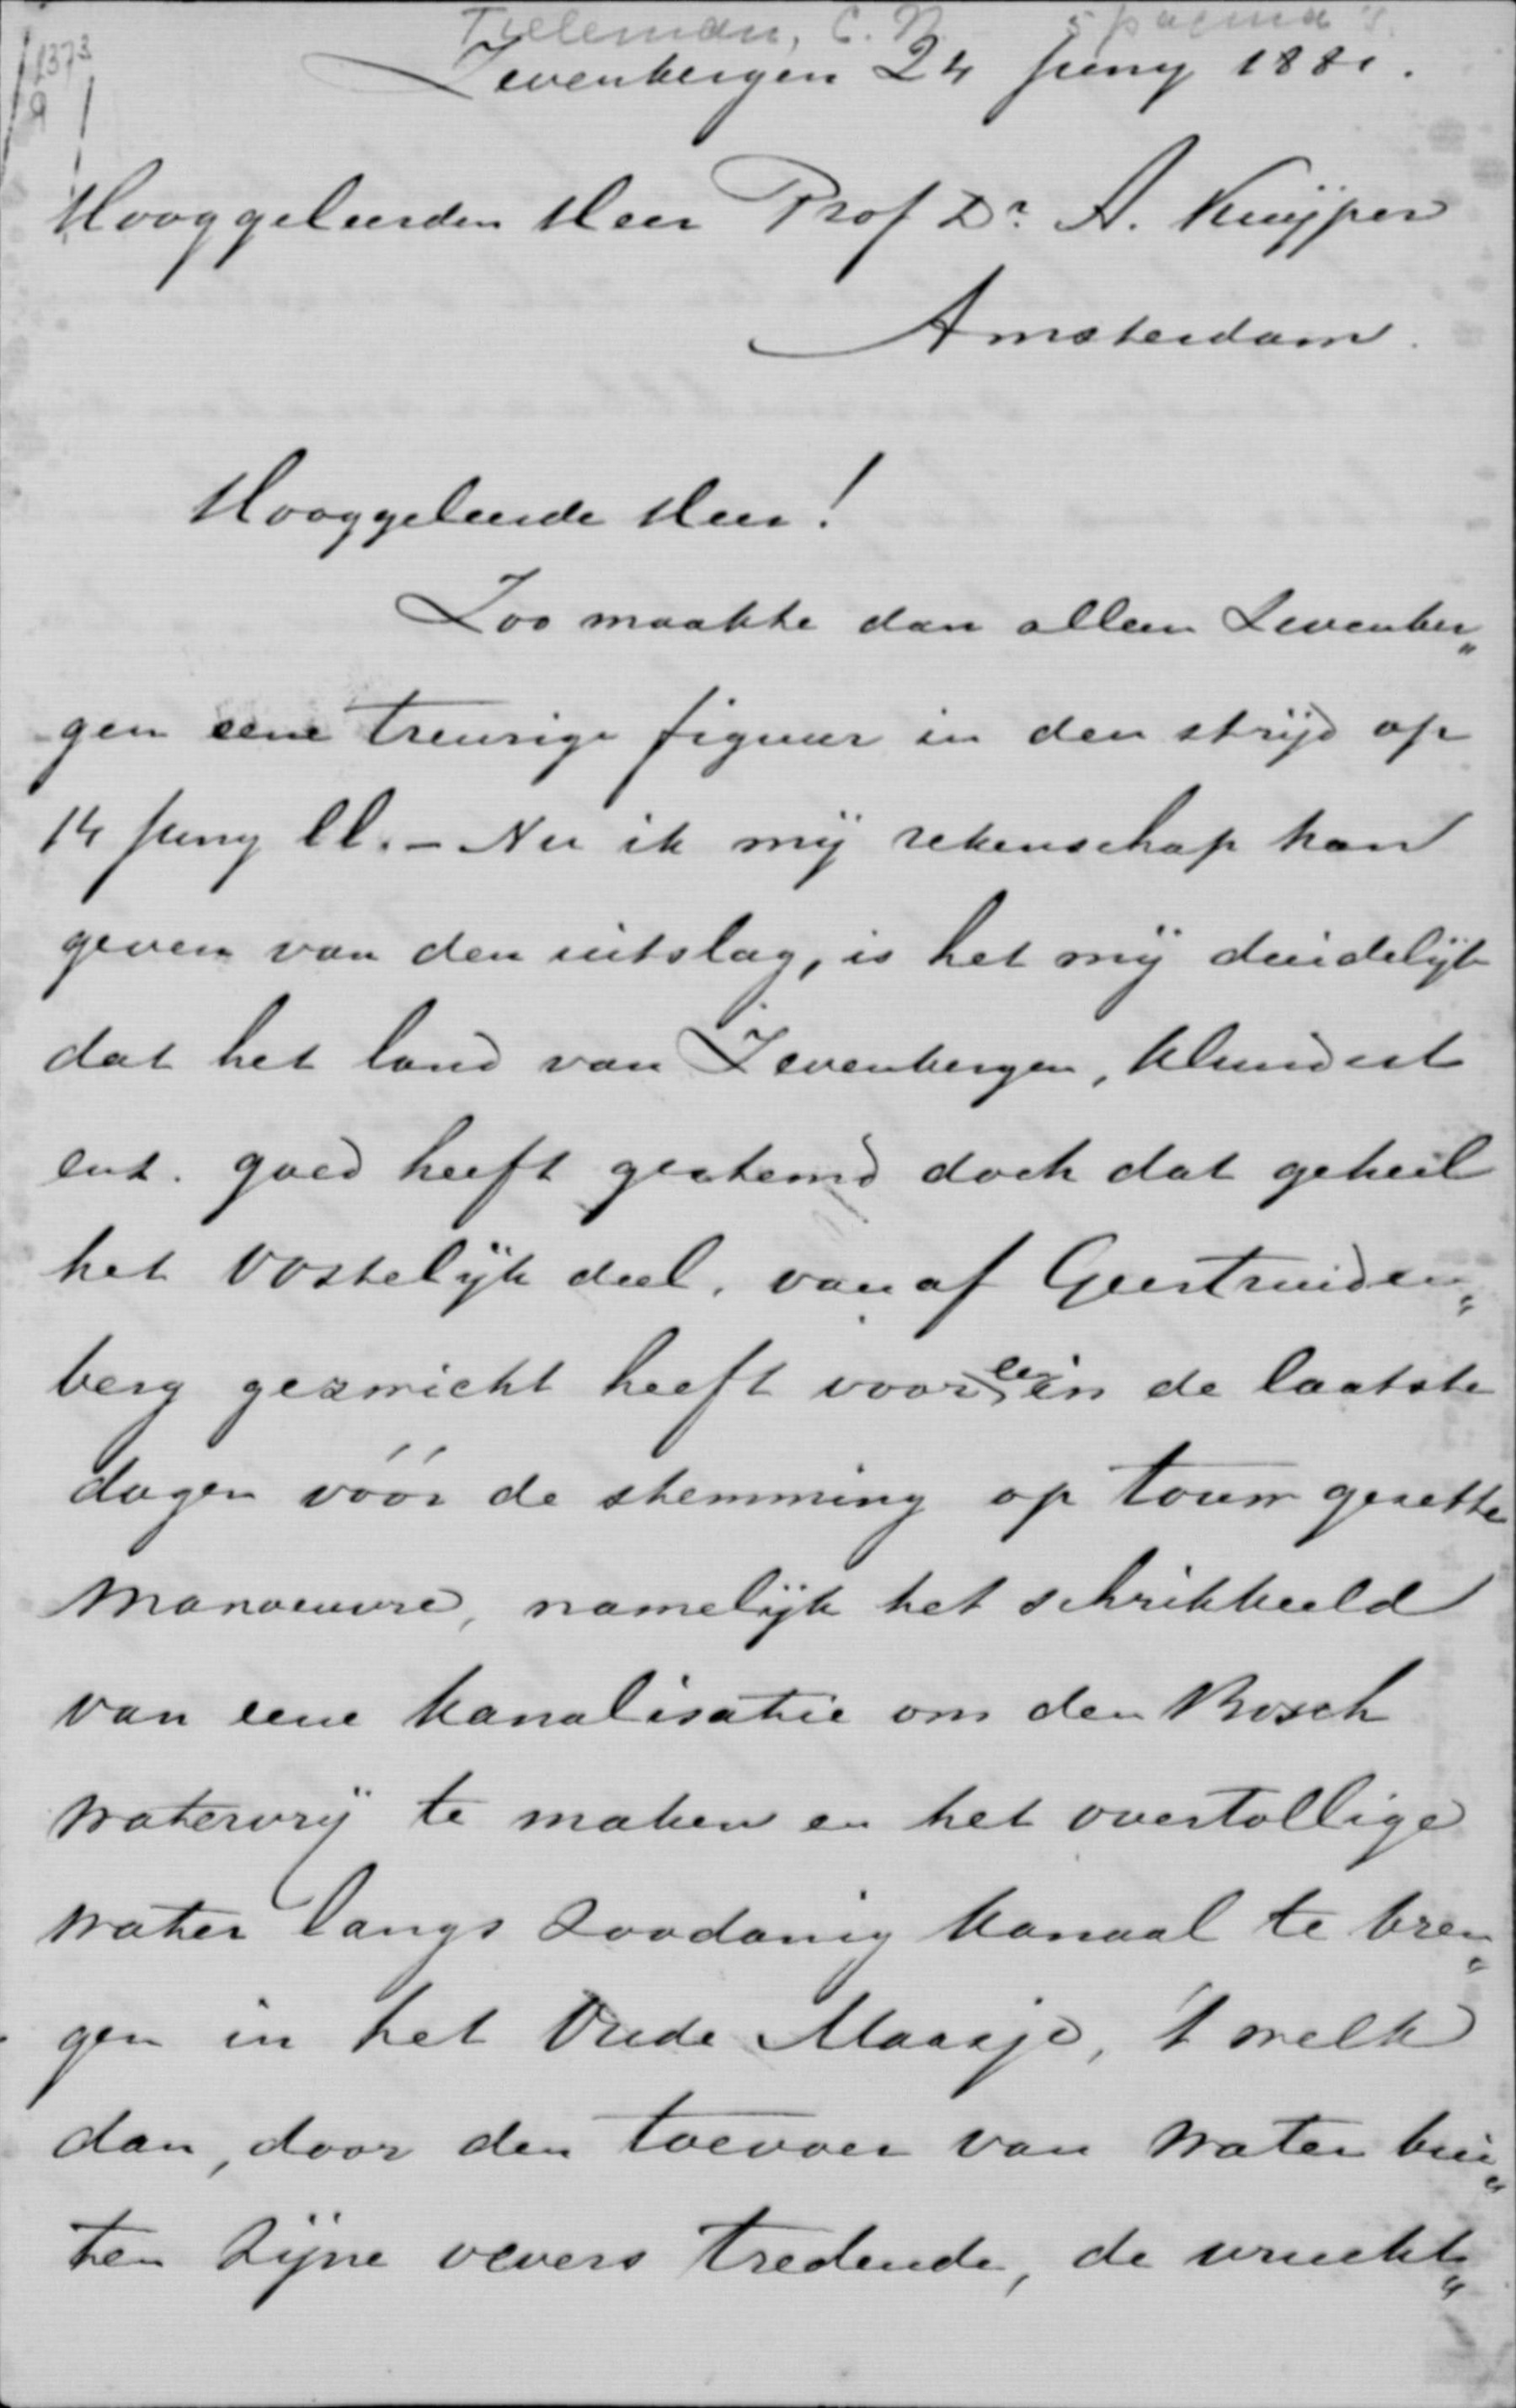 Tieleman, C. N. 5 pagina's.
1373
a
Zevenbergen 24 Juny 1881.
Hooggeleerden Heer Prof Dr. A. Kuijper
Amsterdam.
Hooggeleerde Heer!
Zoo maakte dan alleen Zevenber„
gen eene treurige figuur in den strijd op
14 Juny ll. – Nu ik mij rekenschap kan
geven van den uitslag, is het mij duidelijk
dat het land van Zevenbergen, Klundert
enz. goed heeft gestemd doch dat geheel
het Oostelijk deel, vanaf Geertruiden„
berg gezwicht heeft voor een in de laatste
dagen vóór de stemming op touw gezette
manoeuvre, namelijk het schrikbeeld
van eene kanalisatie om den Bosch
watervrij te maken en het overtollige
water langs zoodanig kanaal te bren„
gen in het Oude Maasje, 't welk
dan, door den toevoer van water bui„
ten zijne oevers tredende, de vrucht„